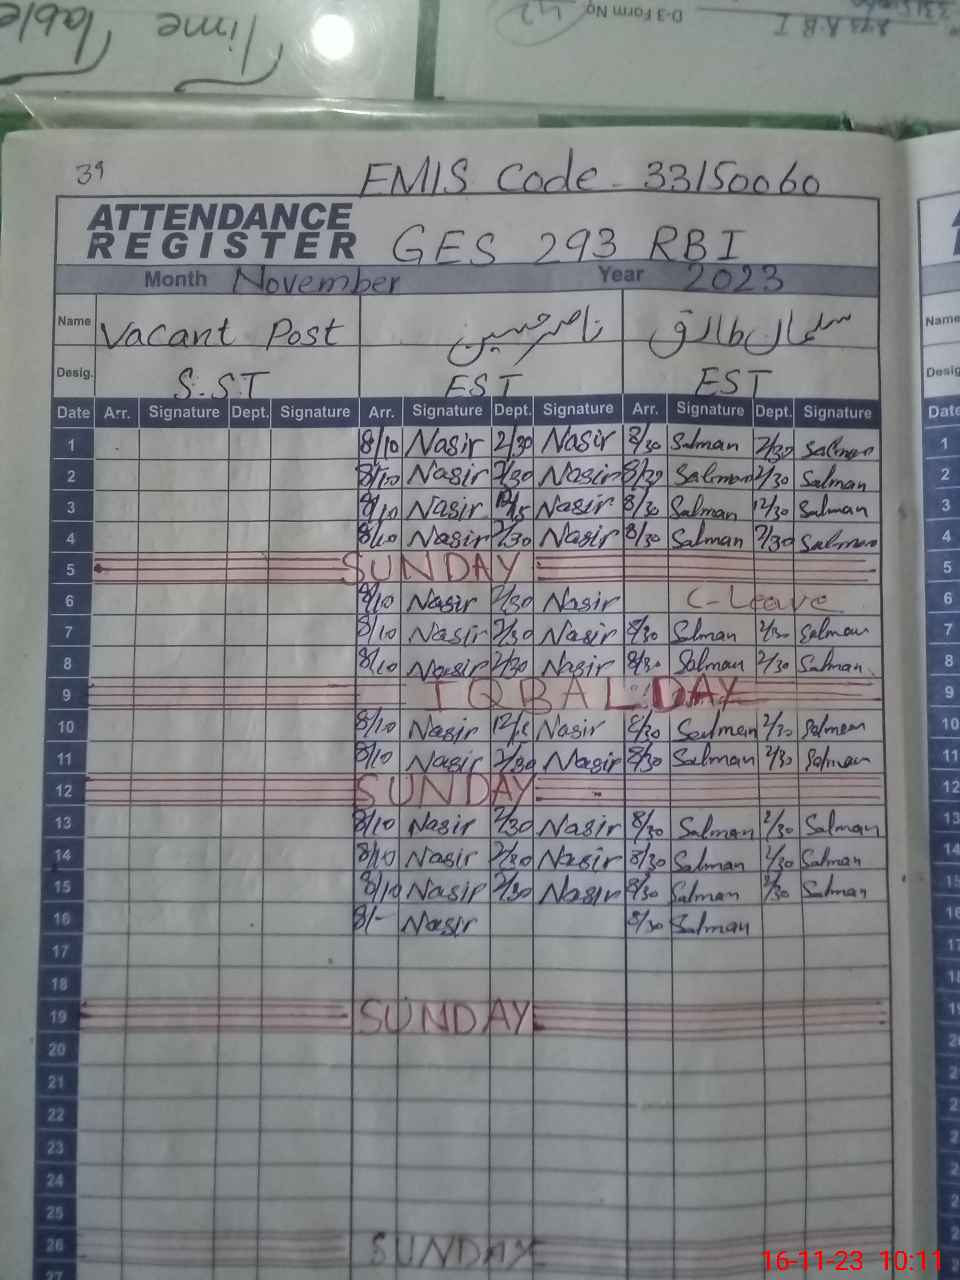 Time Table
D-3 Form No. 42
39
EMIS Code - 33150060
ATTENDANCE REGISTER GES 293 RBI
Month November Year 2023
Name Vacant Post ناصر حسین سلمان طارق
Desig. S.ST EST EST
Date Arr. Signature Dept. Signature Arr. Signature Dept. Signature Arr. Signature Dept. Signature
1 8/10 Nasir 2/30 Nasir 8/30 Salman 2/30 Salman
2 8/10 Nasir 2/30 Nasir 8/30 Salman 2/30 Salman
3 8/10 Nasir Nasir 8/30 Salman 12/30 Salman
4 8/10 Nasir 2/30 Nasir 8/30 Salman 2/30 Salman
5 SUNDAY
6 8/10 Nasir 2/30 Nasir C-Leave
7 8/10 Nasir 2/30 Nasir 8/30 Slman 2/30 Salman
8 8/10 Nasir 2/30 Nasir 8/30 Salman 2/30 Salman
9 IQBAL DAY
10 8/10 Nasir Nasir 8/30 Salman 2/30 Salman
11 8/10 Nasir 2/30 Nasir 8/30 Salman 2/30 Salman
12 SUNDAY
13 8/10 Nasir 2/30 Nasir 8/30 Salman 2/30 Salman
14 8/10 Nasir 2/30 Nasir 8/30 Salman 2/30 Salman
15 8/10 Nasir 2/30 Nasir 8/30 Salman 2/30 Salman
16 8/- Nasir 8/30 Salman
17
18
19 SUNDAY
20
21
22
23
24
25
26 SUNDAY
27
16-11-23 10:11